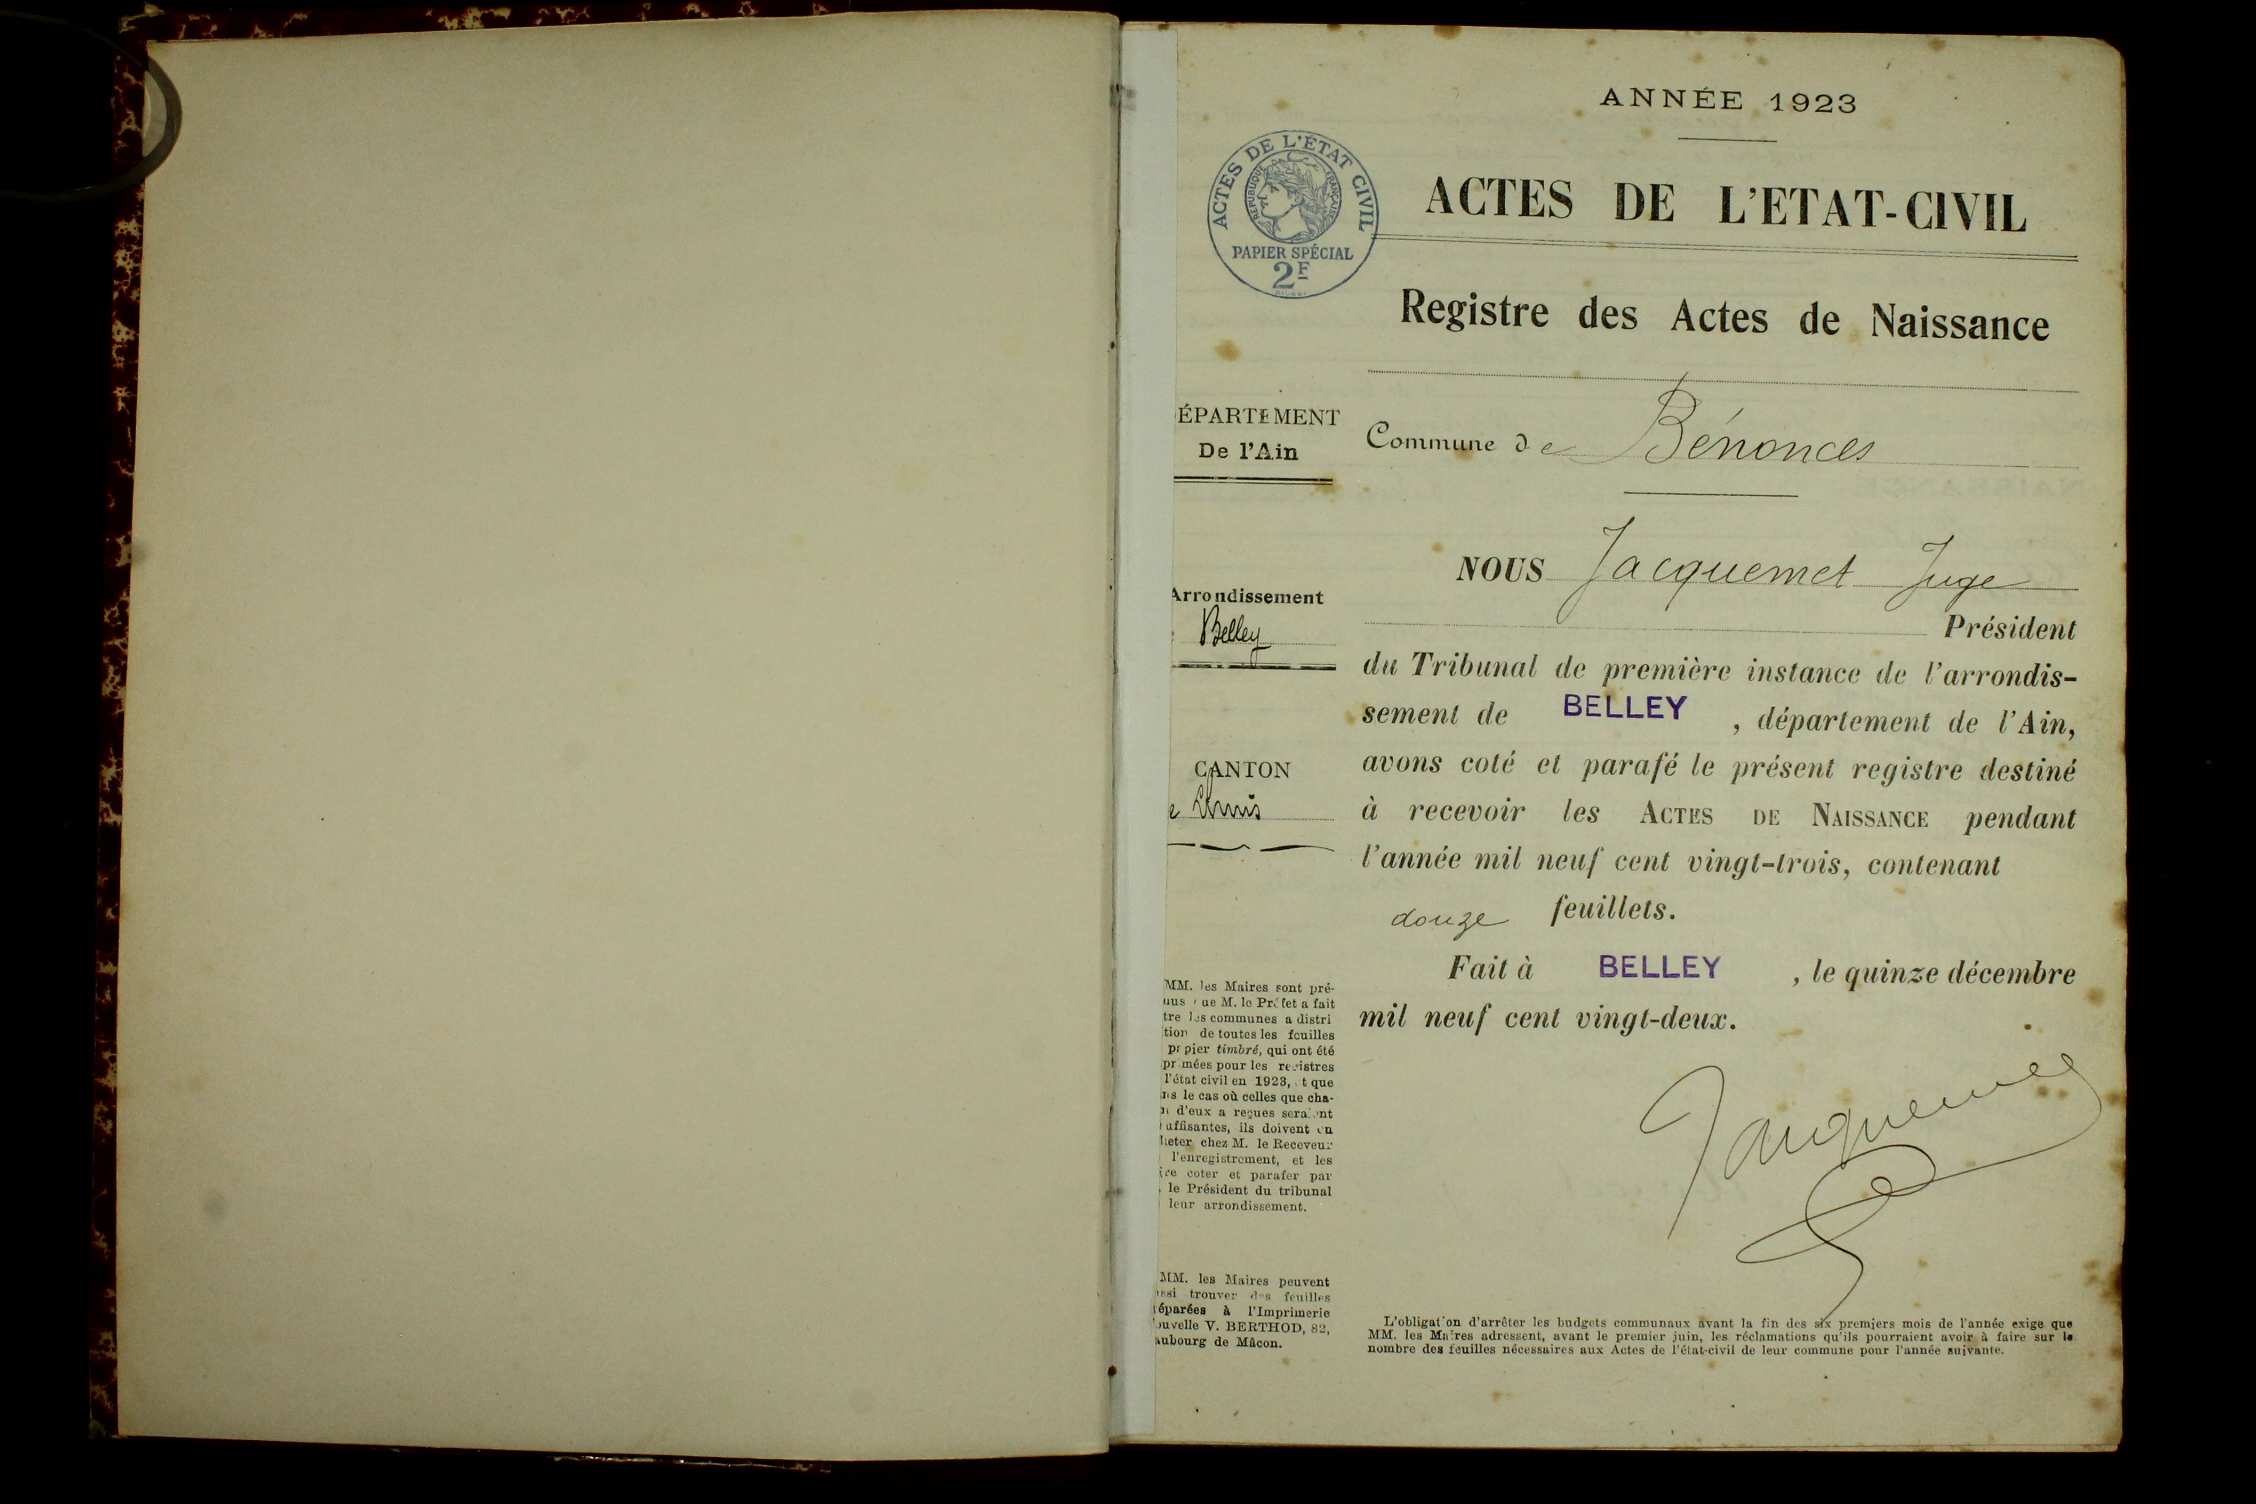 ANNÉE 1923
ACTES DE L'ÉTAT CIVIL
RÉPUBLIQUE FRANÇAISE
PAPIER SPÉCIAL
2F
ACTES DE L'ETAT-CIVIL
Registre des Actes de Naissance
ÉPARTEMENT
De l'Ain
Arrondissement
Belley
CANTON
e Lhuis
MM. les Maires sont pré-
nus que M. le Préfet a fait
tre les communes a distri
tion de toutes les feuilles
papier timbré, qui ont été
primées pour les registres
l'état civil en 1923, et que
ns le cas où celles que cha-
n d'eux a reçues seraient
uffisantes, ils doivent en
heter chez M. le Receveur
l'enregistrement, et les
ire coter et parafer par
. le Président du tribunal
leur arrondissement.
MM. les Maires peuvent
ussi trouver des feuilles
réparées à l'Imprimerie
ouvelle V. BERTHOD, 82,
aubourg de Mâcon.
Commune de Bénonces
NOUS Jacquemet Juge
Président
du Tribunal de première instance de l'arrondis-
sement de BELLEY, département de l'Ain,
avons coté et parafé le présent registre destiné
à recevoir les ACTES DE NAISSANCE pendant
l'année mil neuf cent vingt-trois, contenant
douze feuillets.
Fait à BELLEY, le quinze décembre
mil neuf cent vingt-deux.
Jacquemet
L'obligation d'arrêter les budgets communaux avant la fin des six premiers mois de l'année exige que
MM. les Maires adressent, avant le premier juin, les réclamations qu'ils pourraient avoir à faire sur le
nombre des feuilles nécessaires aux Actes de l'état-civil de leur commune pour l'année suivante.